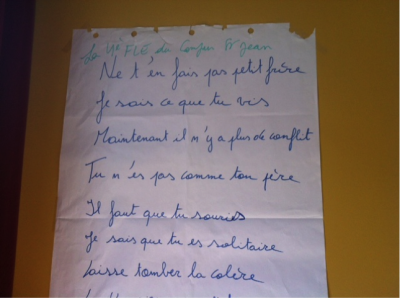 La 4e FLE du Compu St Jean
Ne t'en fais pas petit frère
Je sais ce que tu vis
Maintenant il n'y a plus de conflit
Tu n'es pas comme ton père
Il faut que tu souries
Je sais que tu es solitaire
Laisse tomber la colère